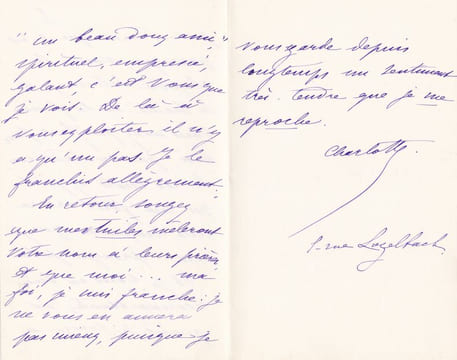 "un beau doux ami"
spirituel, empressé,
galant, c'est vous que
je vois. De là à
vous exploiter il n'y
a qu'un pas. Je le
franchis allègrement.
En retour, songez
que mes tuiles mêleront
votre nom à leurs prières
Et que moi ... ma
foi, je suis franche: je
ne vous en aimerai
pas mieux, puisque je
vous garde depuis
longtemps un sentiment
très tendre que je me
reproche.
Charlotte
1 rue